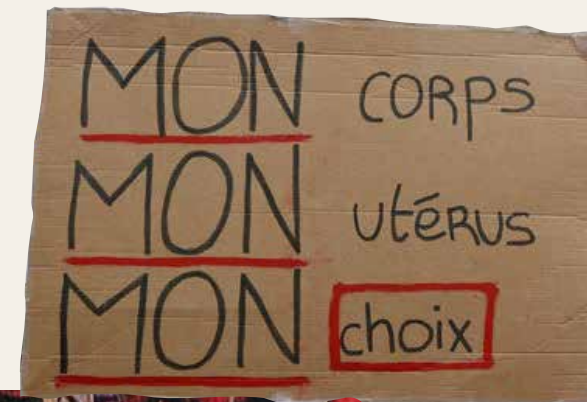 MON CORPS
MON UTÉRUS
MON choix